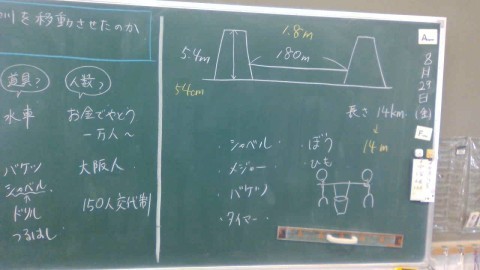 川を移動させたのか
道具?
人数?
水車
お金でやとう
一万人〜
バケツ
大阪人
シャベル
ドリル
150人交代制
つるはし
1.8m
5.4m
180m
54cm
長さ 14km
↓
14m
・シャベル
・ぼう
・メジャー
・ひも
・バケツ
・タイマー
8
月
29
日
(金)